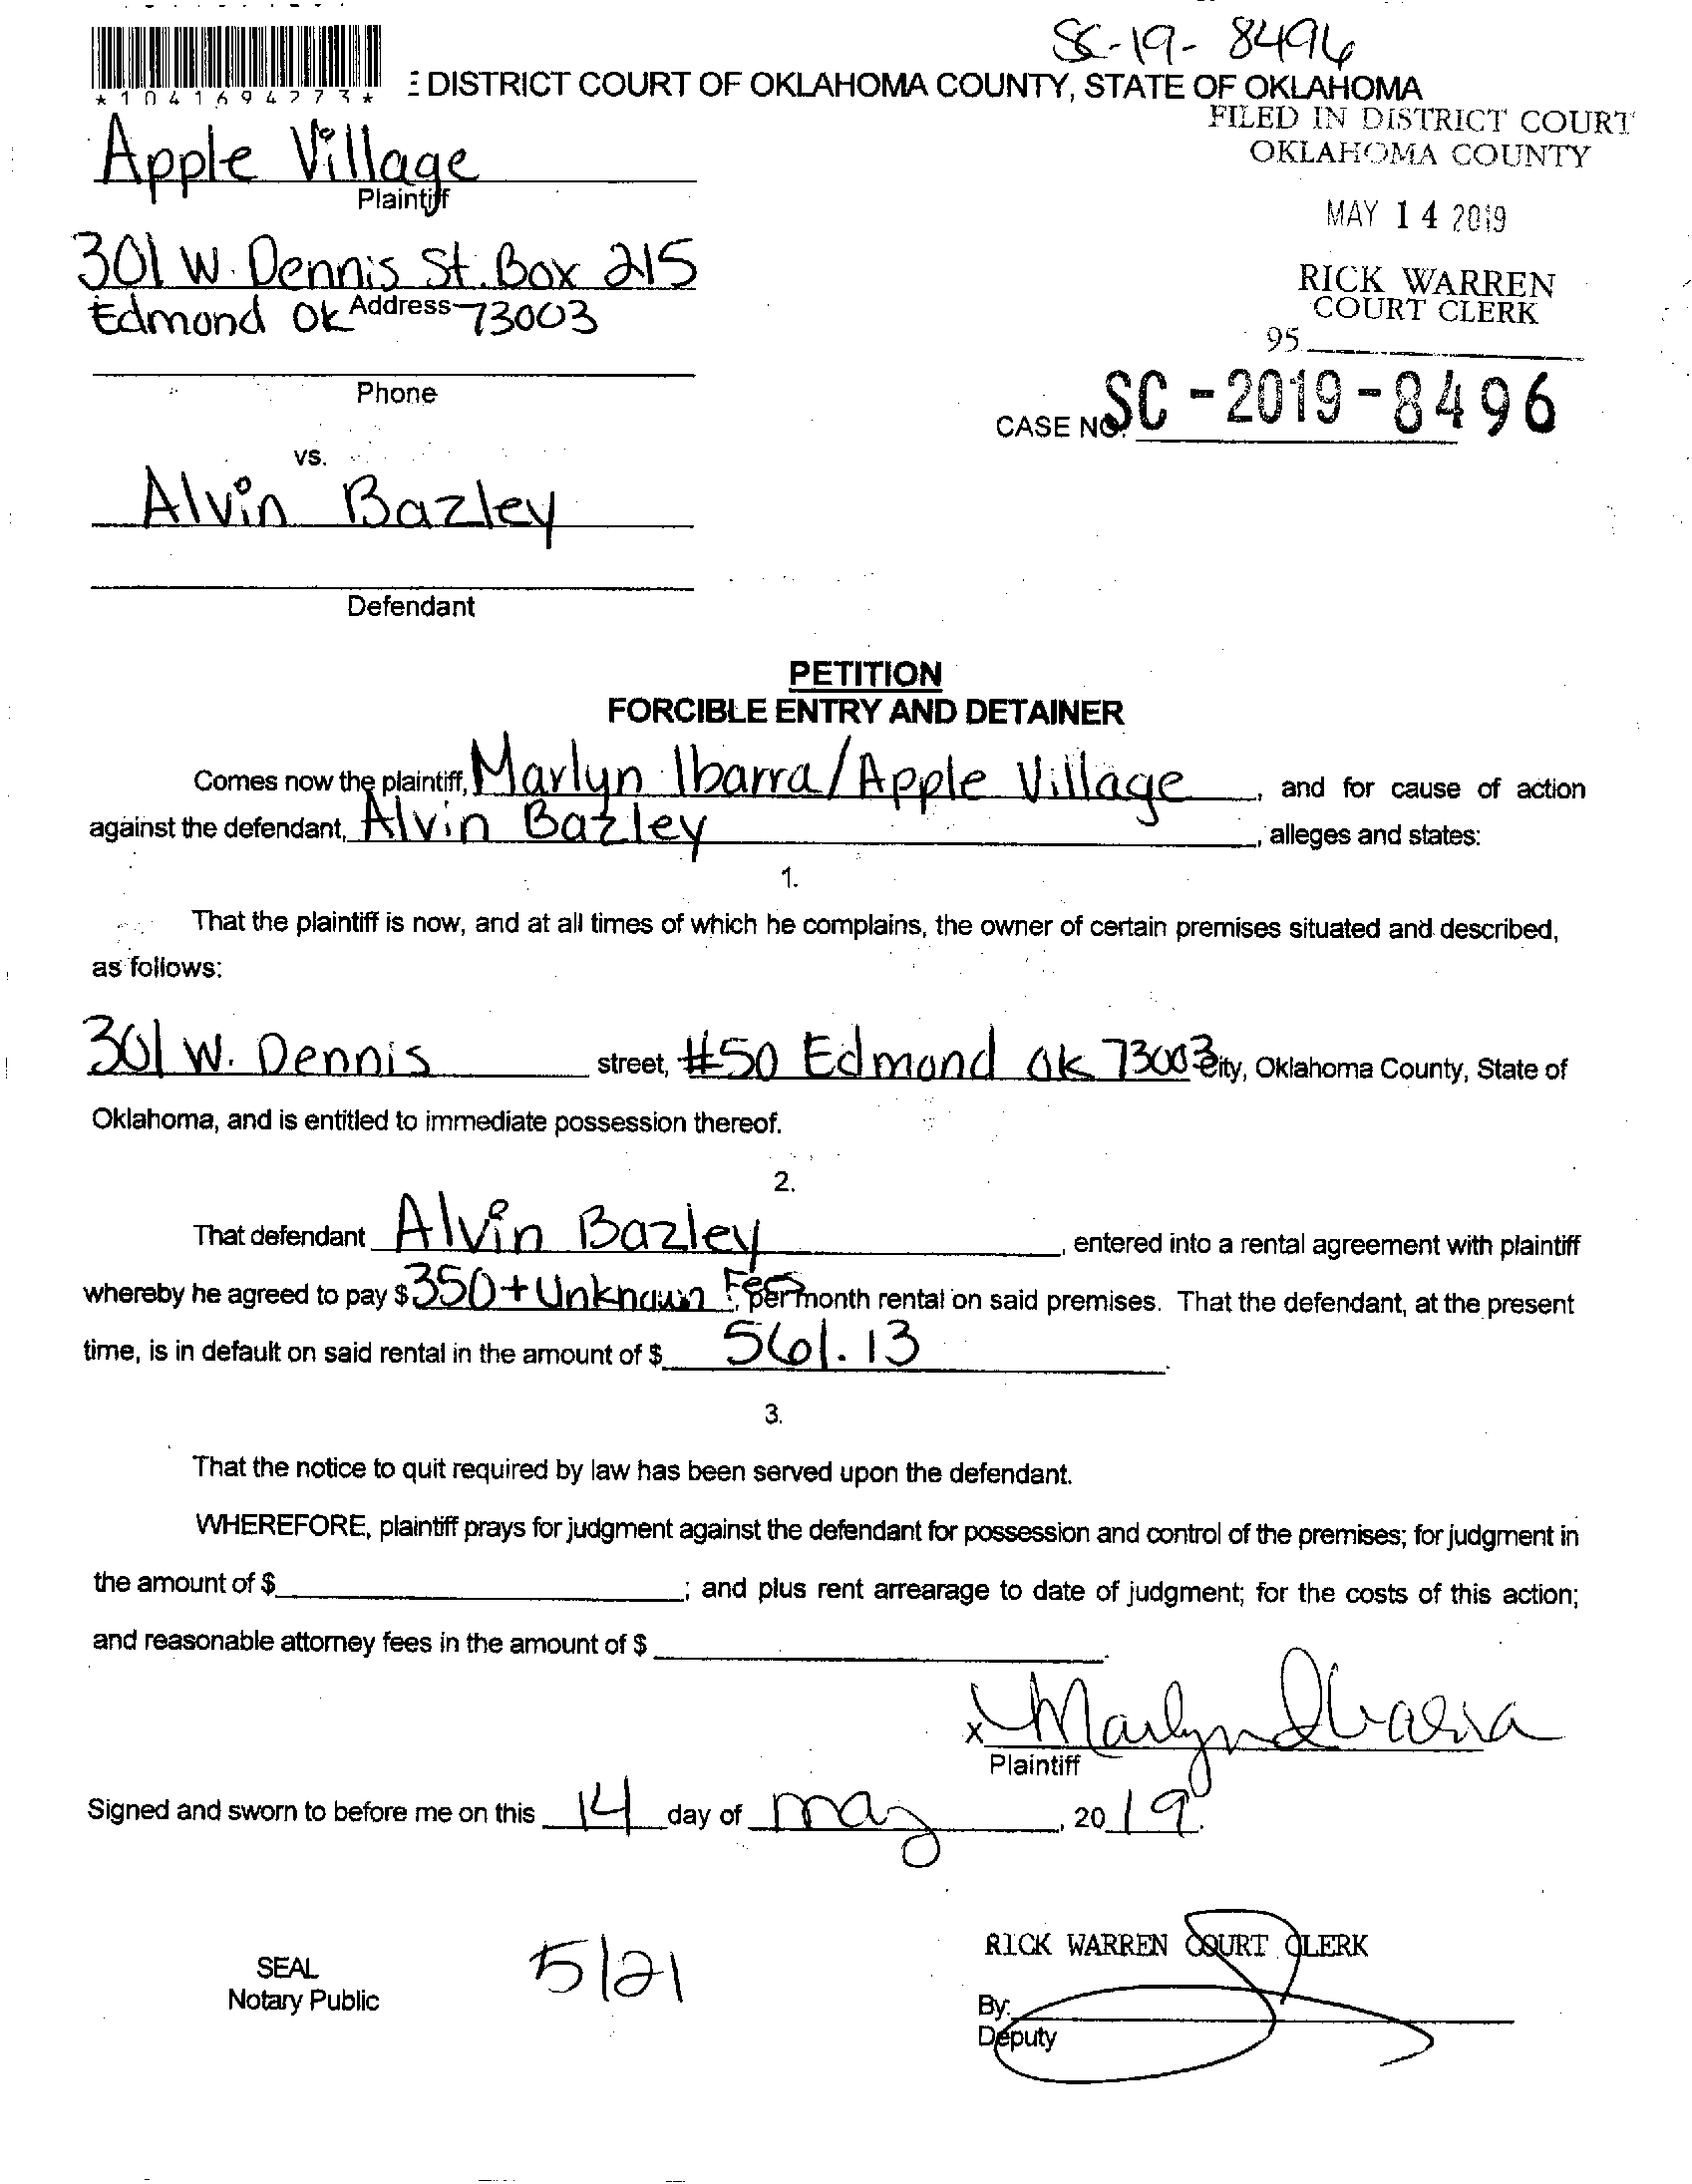 SC-19-8496
*1041694273*
DISTRICT COURT OF OKLAHOMA COUNTY, STATE OF OKLAHOMA
FILED IN DISTRICT COURT
OKLAHOMA COUNTY
Apple Village
Plaintiff
MAY 14 2019
301 W. Dennis St. Box 215
Edmond Ok Address 73003
RICK WARREN
COURT CLERK
95
Phone
CASE NO. SC-2019-8496
vs.
Alvin Bazley
Defendant
PETITION
FORCIBLE ENTRY AND DETAINER
Comes now the plaintiff, Marlyn Ibarra/Apple Village, and for cause of action
against the defendant, Alvin Bazley, alleges and states:
1.
That the plaintiff is now, and at all times of which he complains, the owner of certain premises situated and described,
as follows:
301 W. Dennis street, #50 Edmond Ok 73003 City, Oklahoma County, State of
Oklahoma, and is entitled to immediate possession thereof.
2.
That defendant Alvin Bazley, entered into a rental agreement with plaintiff
whereby he agreed to pay $ 350+Unknown Fees, per month rental on said premises. That the defendant, at the present
time, is in default on said rental in the amount of $ 561.13.
3.
That the notice to quit required by law has been served upon the defendant.
WHEREFORE, plaintiff prays for judgment against the defendant for possession and control of the premises; for judgment in
the amount of $; and plus rent arrearage to date of judgment; for the costs of this action;
and reasonable attorney fees in the amount of $.
X Marlyn Ibarra
Plaintiff
Signed and sworn to before me on this 14 day of may, 2019.
RICK WARREN COURT CLERK
SEAL
Notary Public
5/21
By:
Deputy